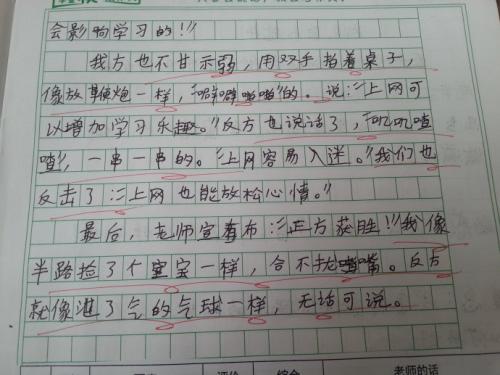 会影响学习的！”
我方也不甘示弱，用双手拍着桌子，
像放鞭炮一样，“噼噼啪啪”的。说：“上网可
以增加学习乐趣。”反方也说话了，叽叽喳
喳，一串一串的。“上网容易入迷。”我们也
反击了：“上网也能放松心情。”
最后，老师宣布：“正方获胜！”我像
半路捡了个宝宝一样，合不拢嘴。反方
就像泄了气的气球一样，无话可说。
评价 综合 老师的话